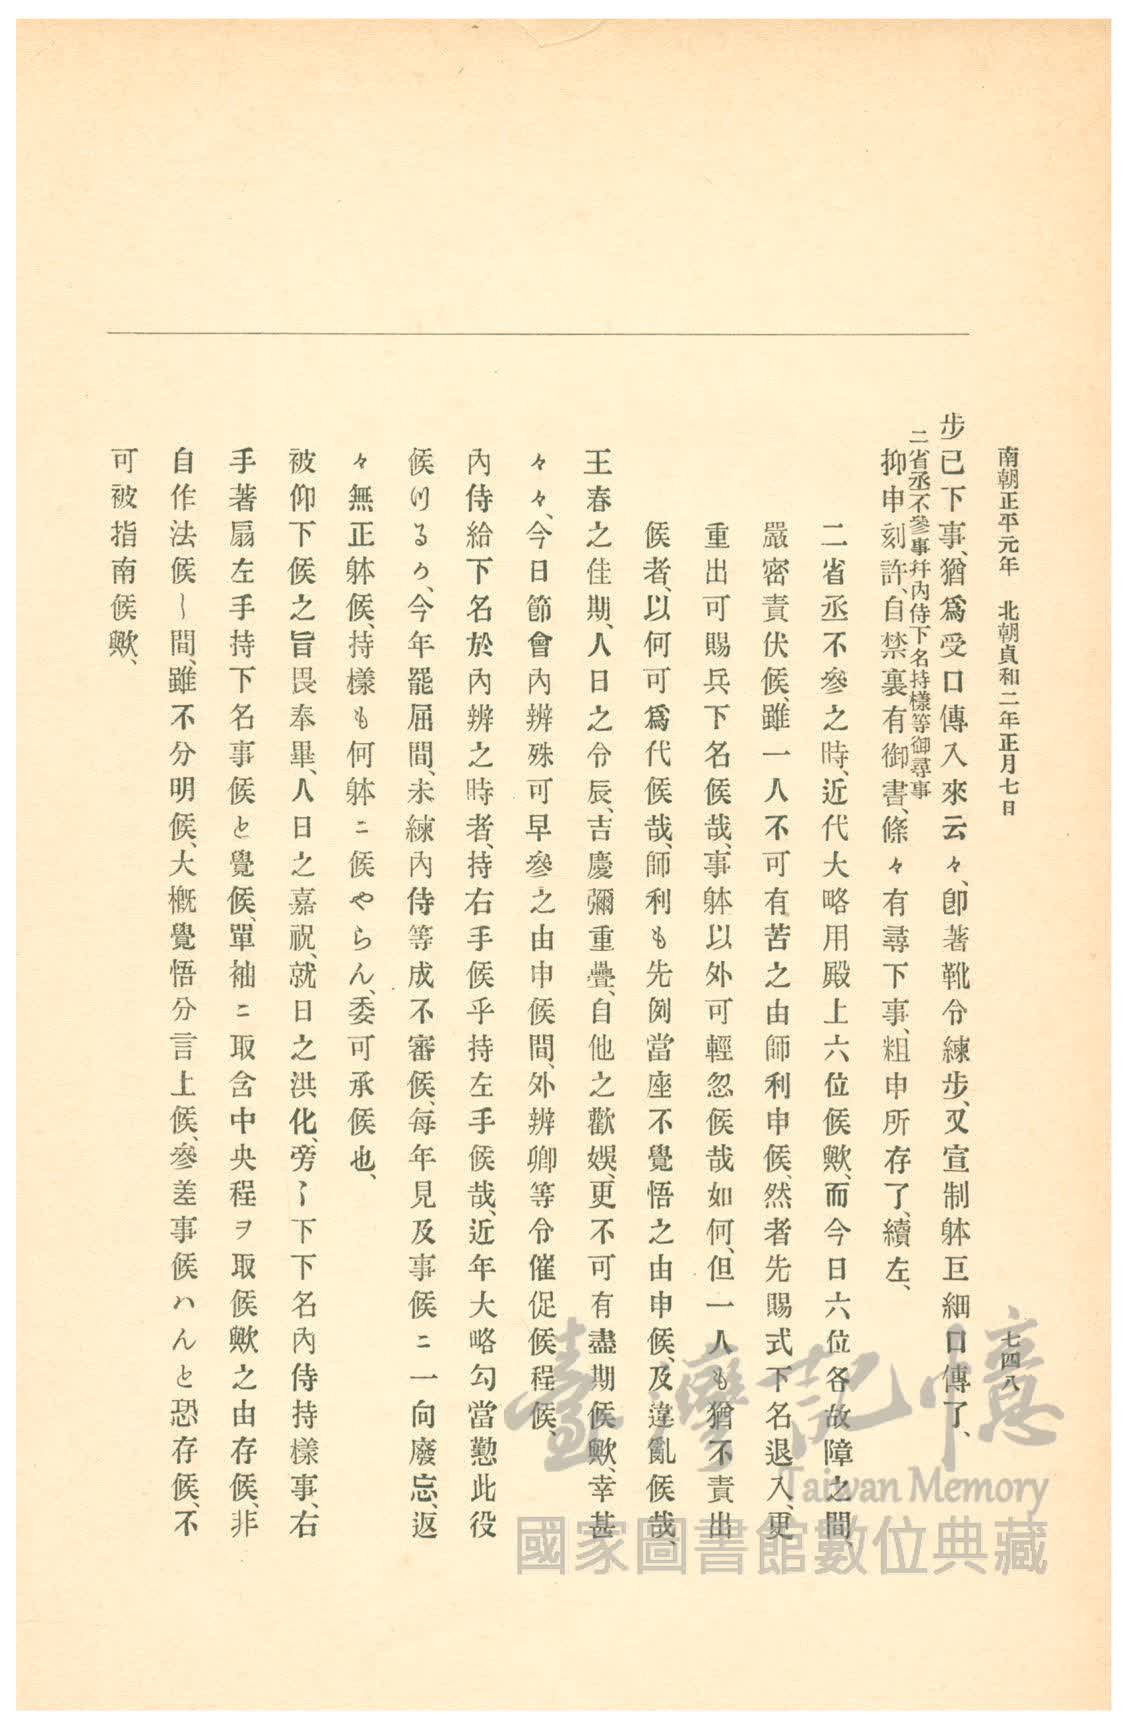 南朝正平元年 北朝貞和二年正月七日
七四八
步已下事、猶爲受口傳入來云々、卽著靴令練步、又宣制躰巨細口傳了、
二省丞不參事幷內侍下名持樣等御尋事
抑申刻許、自禁裏有御書、條々有尋下事、粗申所存了、續左、
二省丞不參之時、近代大略用殿上六位候歟、而今日六位各故障之間、
嚴密責伏候、雖一人不可有苦之由師利申候、然者先賜式下名退入、更
重出可賜兵下名候哉、事躰以外可輕忽候哉如何、但一人も猶不責出
候者、以何可爲代候哉、師利も先例當座不覺悟之由申候、及違亂候哉、
王春之佳期、人日之令辰、吉慶彌重疊、自他之歡娛、更不可有盡期候歟、幸甚
々々、今日節會內辨殊可早參之由申候間、外辨卿等令催促候程候、
內侍給下名於內辨之時者、持右手候乎持左手候哉、近年大略勾當懃此役
候つるか、今年罷屆間、未練內侍等成不審候、每年見及事候ニ一向廢忘、返
々無正躰候、持樣も何躰ニ候やらん、委可承候也、
被仰下候之旨畏奉畢、人日之嘉祝、就日之洪化、旁〻下下名內侍持樣事、右
手著扇左手持下名事候と覺候、單袖ニ取含中央程ヲ取候歟之由存候、非
自作法候〻間、雖不分明候、大槪覺悟分言上候、參差事候ハんと恐存候、不
可被指南候歟、
臺灣記憶
Taiwan Memory
國家圖書館數位典藏